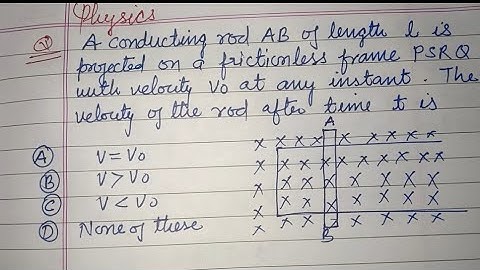 Physics
Q A conducting rod AB of length l is
projected on a frictionless frame PSRQ
with velocity V0 at any instant. The
velocity of the rod after time t is
A
x x x x x x x x x x
A V = V0
x x x x x x x x x
B V > V0
x x x x x x x x
C V < V0
x x x x x x x x
D None of these
x x x x x x x x
B